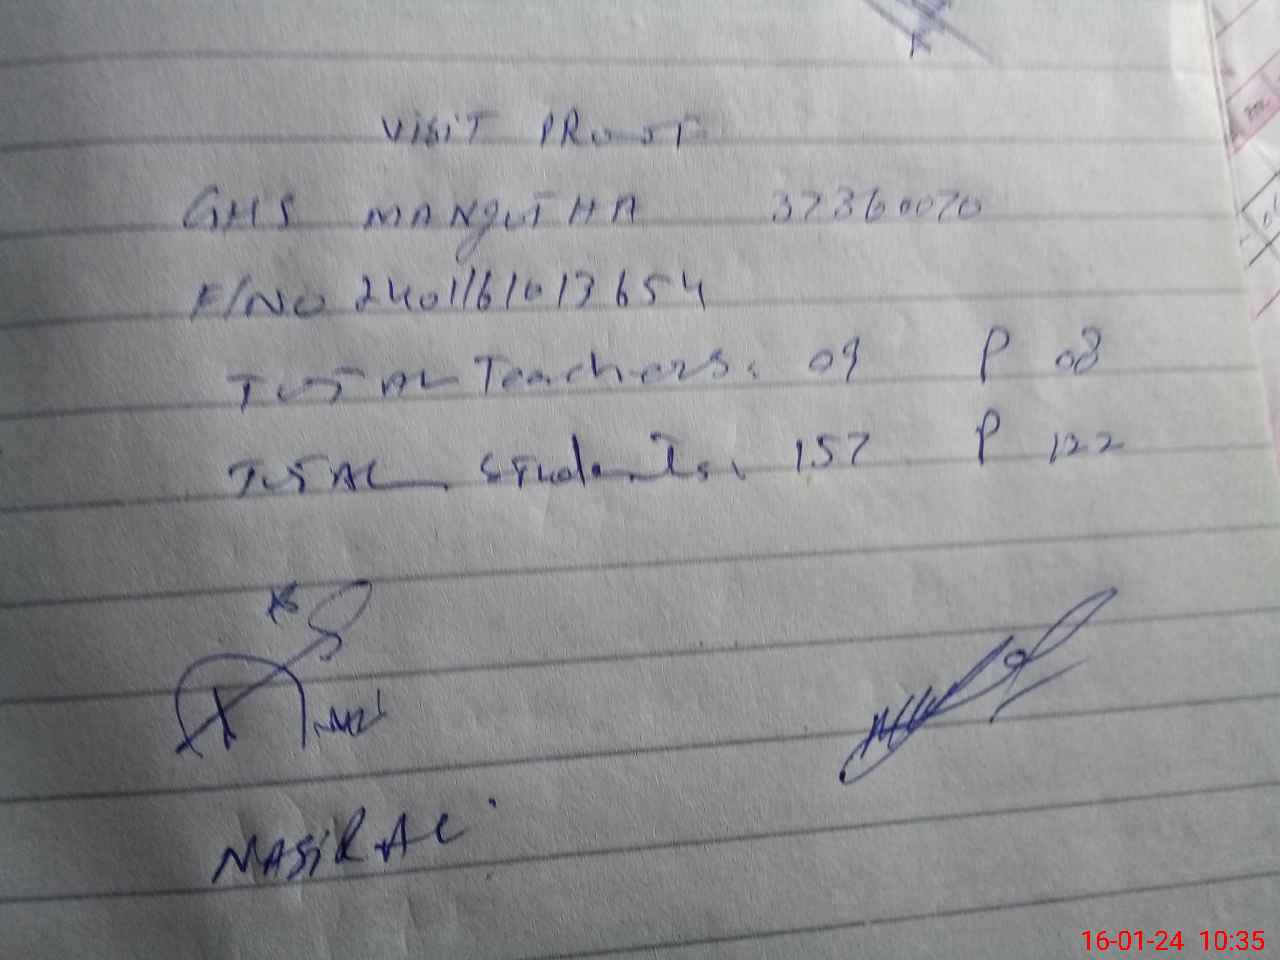 VISIT PROOF
GHS MANGUTHA 37360070
F/NO 2401161013654
TOTAL Teachers: 09 P 08
TOTAL Students: 157 P 122
NASIR AC
16-01-24 10:35